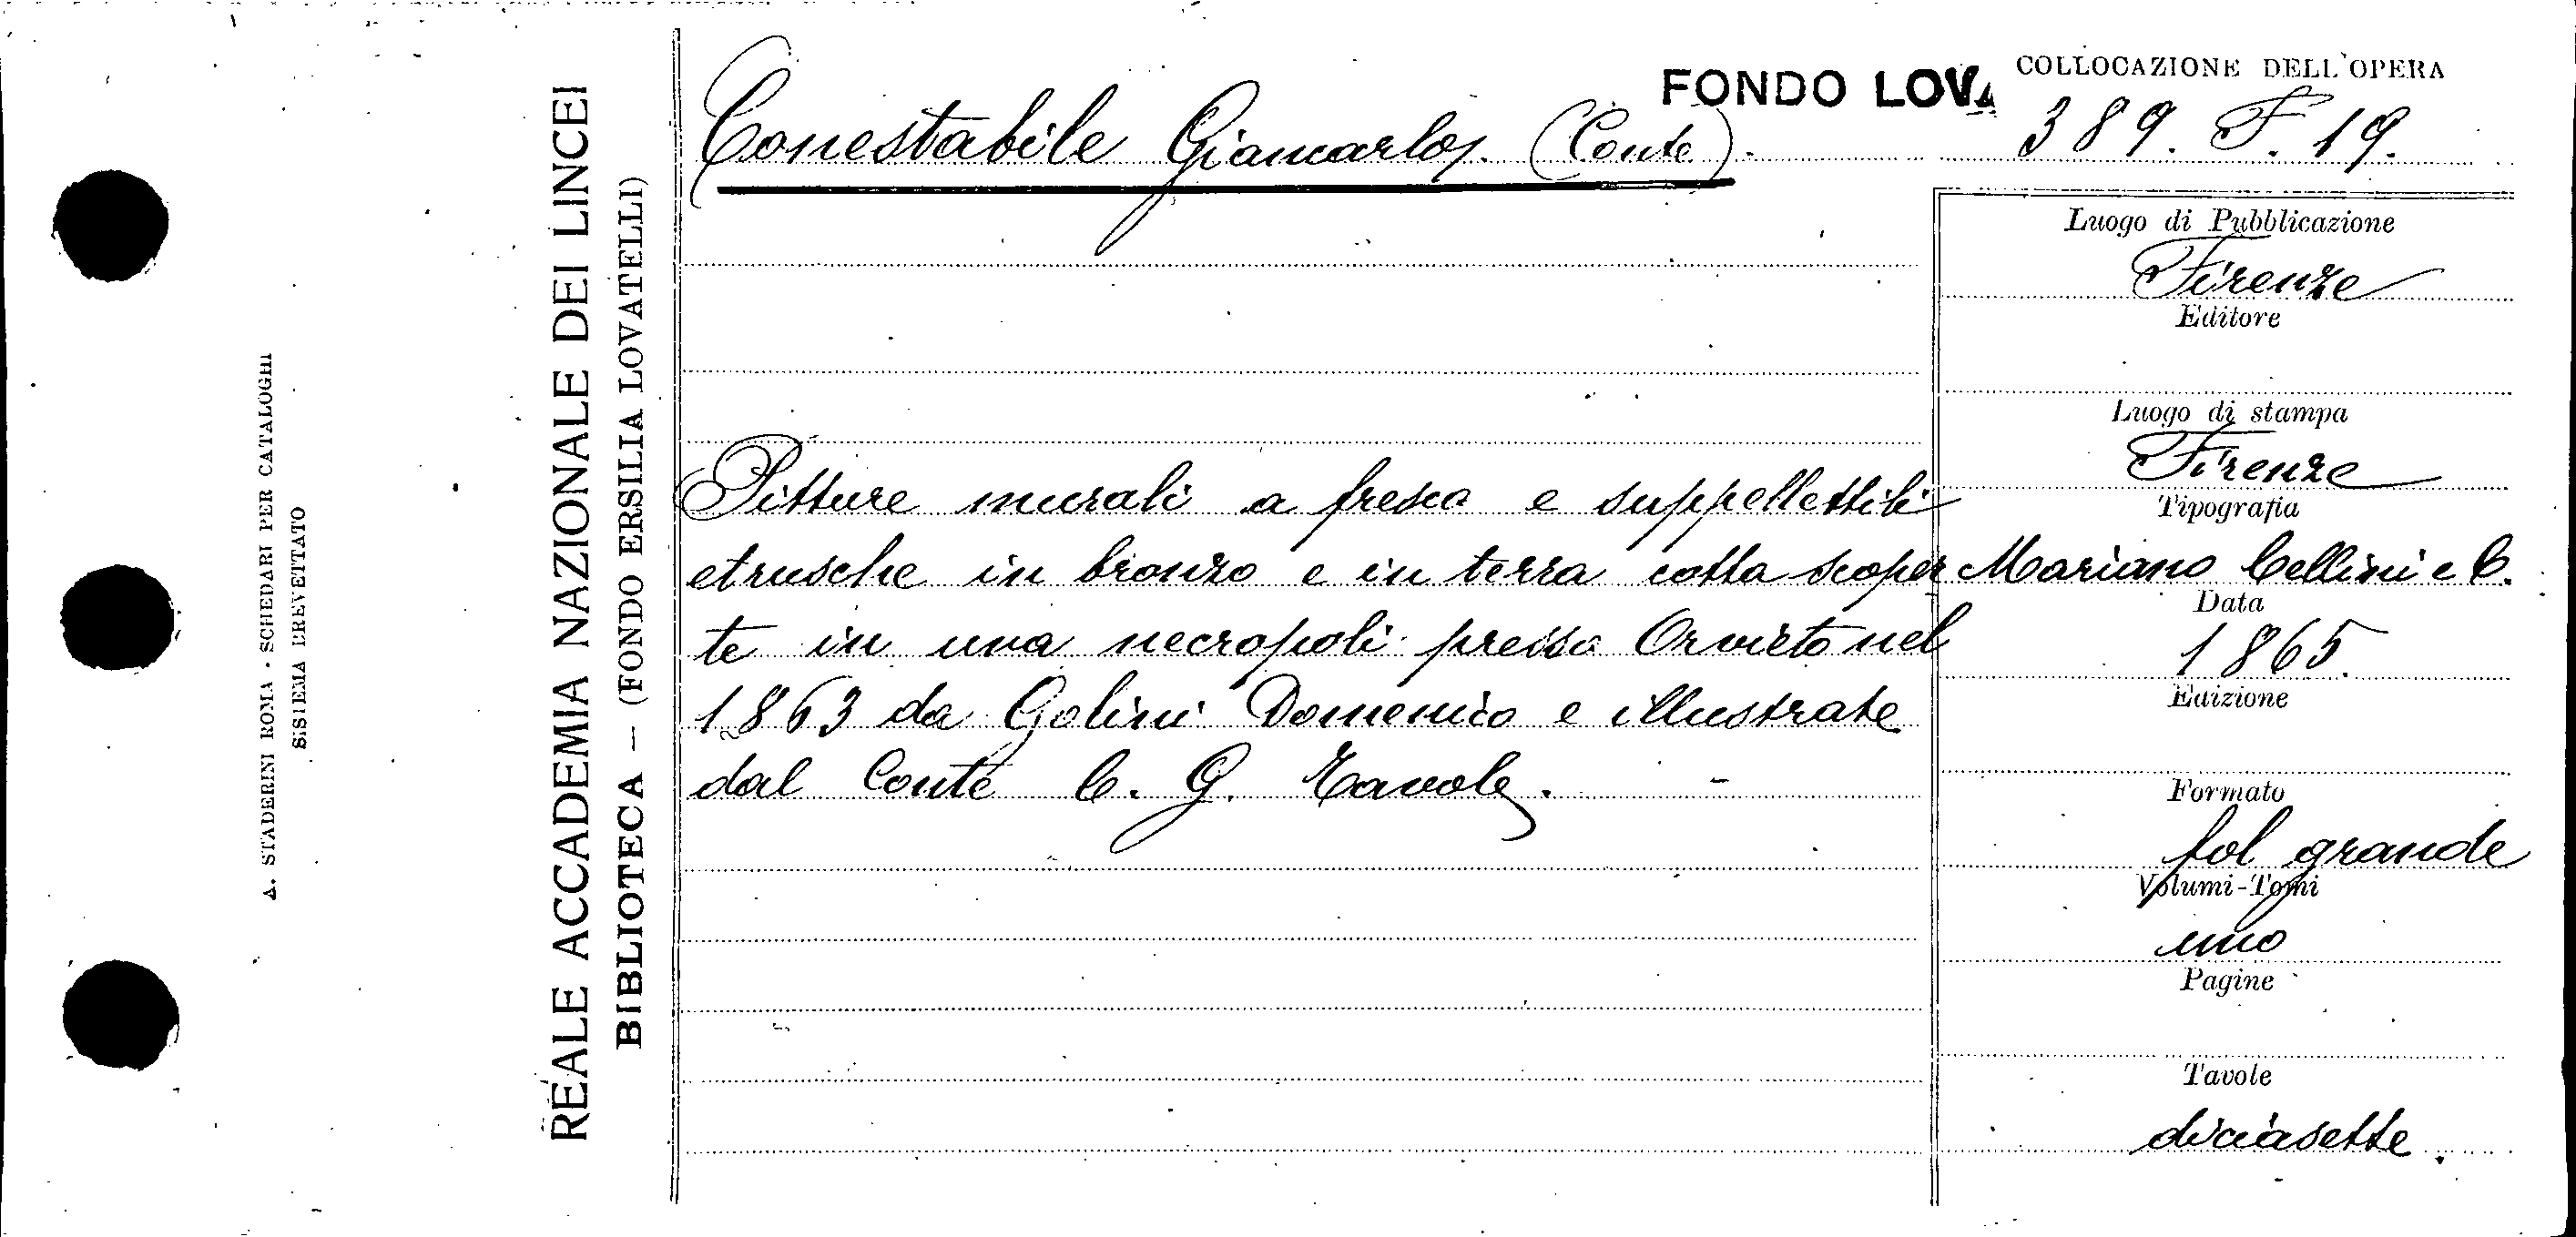 A. STADERINI ROMA - SCHEDARI PER CATALOGHI
SISTEMA BREVETTATO
REALE ACCADEMIA NAZIONALE DEI LINCEI
BIBLIOTECA — (FONDO ERSILIA LOVATELLI)
FONDO LOVA
COLLOCAZIONE DELL'OPERA
389. F. 19.
Conestabile Giancarlo. (Conte).
Pitture murali a fresco e suppellettili
etrusche in bronzo e in terra cotta scoper
te in una necropoli presso Orvieto nel
1863 da Golini Domenico e illustrate
dal Conte C. G. Tavole. -
Luogo di Pubblicazione
Firenze
Editore
Luogo di stampa
Firenze
Tipografia
Mariano Cellini e C.
Data
1865.
Edizione
Formato
fol grande
Volumi-Tomi
uno
Pagine
Tavole
diciasette.